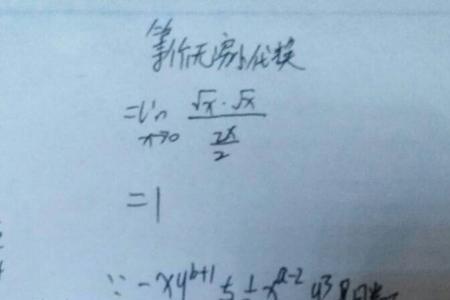 等价无穷小代换
=lim x→0 (√x·√x)/(2x/2)
=1
∵ -xy^{b+1} 与 ½x^{a-2}y³